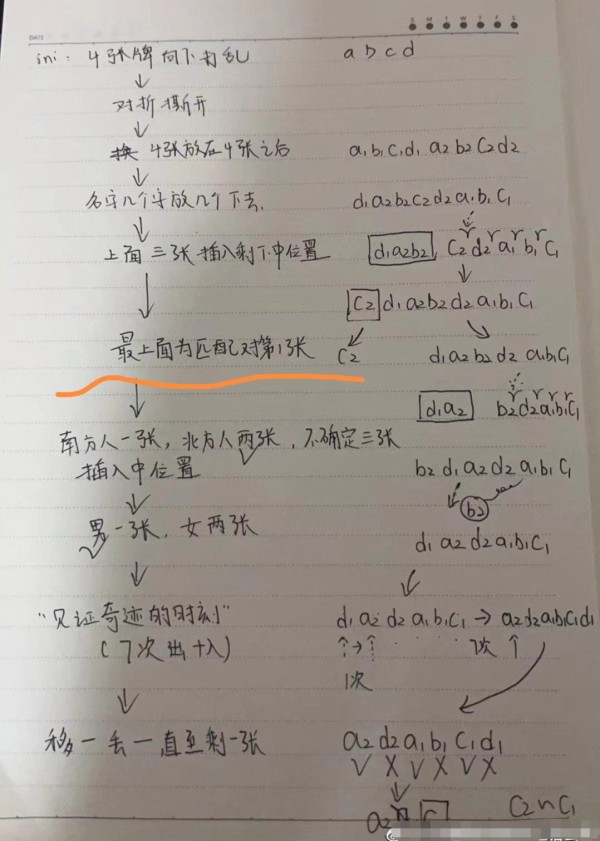 DATE S M T W T F S
ini: 4张牌向下打乱 a b c d
对折撕开
4张放在4张之后 a1b1c1d1 a2b2c2d2
名字几个字放几个下去. d1a2b2c2d2a1b1c1
上面三张插入剩下中位置 d1a2b2 c2d2a1b1c1
c2 d1a2b2d2a1b1c1
最上面为匹配对第1张 c2 d1a2b2d2 a1b1c1
d1a2 b2d2a1b1c1
南方人一张,北方人两张,不确定三张
插入中位置 b2 d1 a2d2a1b1c1
b2
男一张,女两张 d1 a2d2a1b1c1
"见证奇迹的时刻" d1a2d2a1b1c1 → a2d2a1b1c1d1
(7次出+入) 7次
1次
移一丢一直至剩一张 a2d2a1b1c1d1
V X V X V X
a2 c2nc1